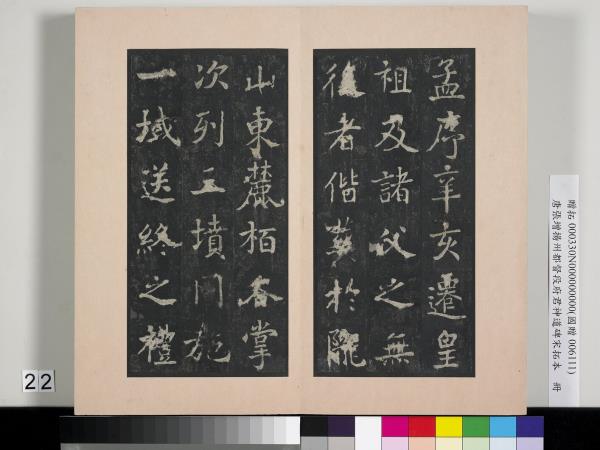 孟序辛亥遷皇
祖及諸父之無
後者偕葬於隴
山東麓栢谷掌
次列五墳施
一域送終之禮
贈拓 000330N000000000(國贈 006111)
唐張增揚州都督段府君神道碑宋拓本 冊
22